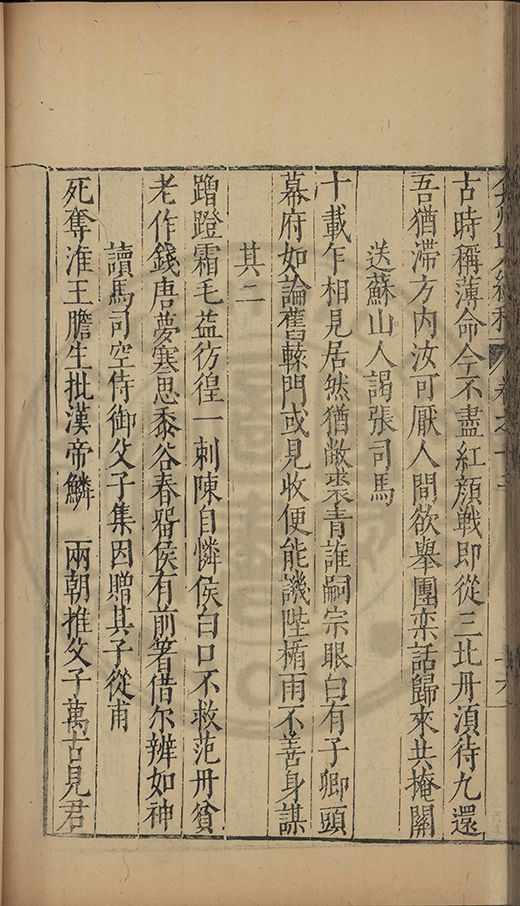 弇州山人續稿 卷之十三 十六
古時稱薄命今不盡紅顔戰即從三北丹須待九還
吾猶滯方内汝可厭人間欲舉團栾話歸來共掩關
送蘇山人謁張司馬
十載乍相見居然猶敝裘青誰嗣宗眼白有子卿頭
幕府如論舊轅門或見收便能譏陛楯雨不善身謀
其二
蹭蹬霜毛益彷徨一刺陳自憐侯白口不救范丹貧
老作錢唐夢寒思黍谷春留侯有前箸借尔辨如神
讀馬司空侍御父子集因贈其子從甫
死奪淮王膽生批漢帝鱗 兩朝推父子萬古見君